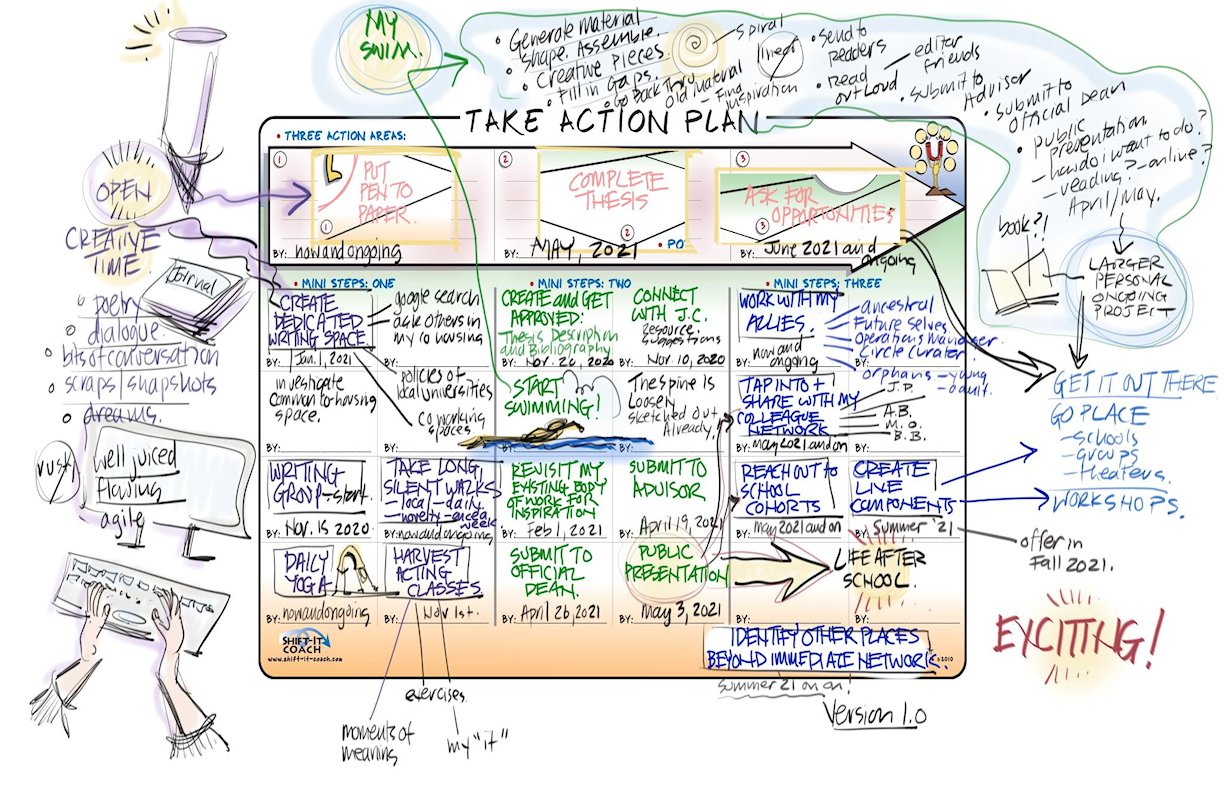 MY
SWIM.
• Generate material
Shape. Assemble.
• Creative Pieces
• Fill in Gaps.
• Go Back Thru
Old Material
- Find
inspiration
Spiral
linear
• Send to
Readers
• Read
out Loud
editor
friends
• Submit to
Advisor
• Submit to
official Dean
• public
presentation
- how do i want to do?
- reading? - online?
April/May.
book?!
LARGER
PERSONAL
ONGOING
PROJECT
TAKE ACTION PLAN
• THREE ACTION AREAS:
1
PUT
PEN TO
PAPER.
1
BY: now and ongoing
2
COMPLETE
THESIS
2
• PO
BY: MAY, 2021
3
ASK FOR
OPPORTUNITIES
3
BY: June 2021 and
ongoing
OPEN
CREATIVE
TIME.
Journal
poetry
dialogue
bits of conversation
scraps/snapshots
dreams.
rusty
well juiced
flowing
agile
• MINI STEPS: ONE
CREATE
DEDICATED
WRITING SPACE.
BY: Jan. 1, 2021
google search
ask others in
my co housing
BY:
investigate
common to housing
space.
BY:
policies of
local universities
co working
spaces
BY:
WRITING
GROUP - start.
BY: Nov. 15 2020
TAKE LONG,
SILENT WALKS
- local - daily
- novelty - once a
week
BY: now and ongoing
DAILY
YOGA
BY: now and ongoing
HARVEST
ACTING
CLASSES.
BY: Nov 1st.
exercises.
moments of
meaning
my "it"
• MINI STEPS: TWO
CREATE and GET
APPROVED:
Thesis Description
and Bibliography
BY: Nov. 20, 2020
CONNECT
WITH J.C.
Resource
Suggestions
BY: Nov. 10, 2020
START
SWIMMING!
BY:
The Spine Is
Loosely
sketched out
Already!
BY:
REVISIT MY
EXISTING BODY
OF WORK FOR
INSPIRATION
BY: Feb 1, 2021
SUBMIT TO
ADVISOR
BY: April 19, 2021
SUBMIT TO
OFFICIAL
DEAN.
BY: April 26, 2021
PUBLIC
PRESENTATION
BY: May 3, 2021
• MINI STEPS: THREE
WORK WITH MY
ALLIES.
BY: now and
ongoing
ancestral
Future Selves
Operations Manager
Circle Curator
orphans - young
- adult.
BY:
TAP INTO +
SHARE WITH MY
COLLEAGUE
NETWORK
BY: May 2021 and on
J.P.
A.B.
M.O.
B.B.
BY:
REACH OUT TO
SCHOOL
COHORTS
BY: May 2021 and on
CREATE
LIVE
COMPONENTS
BY: Summer '21
offer in
Fall 2021.
LIFE AFTER
SCHOOL.
BY:
BY:
IDENTIFY OTHER PLACES
BEYOND IMMEDIATE NETWORK.
Summer 21 on on!
©2010
Version 1.0
SHIFT-IT
COACH
www.shift-it-coach.com
GET IT OUT THERE
GO PLACE
- schools
- groups
- theaters.
WORKSHOPS.
EXCITING!